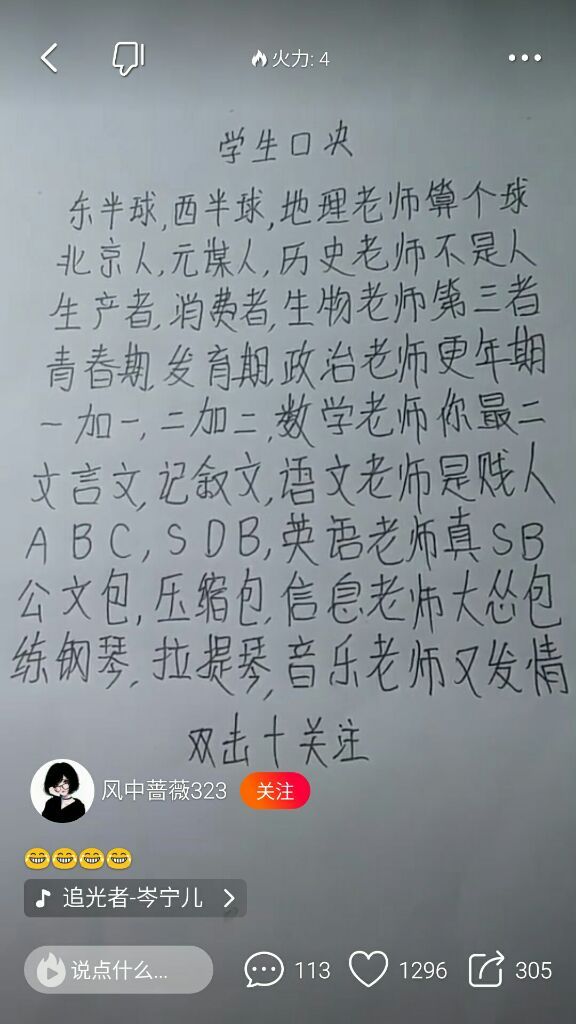 火力: 4
学生口决
东半球,西半球,地理老师算个球
北京人,元谋人,历史老师不是人
生产者,消费者,生物老师第三者
青春期,发育期,政治老师更年期
一加一,二加二,数学老师你最二
文言文,记叙文,语文老师是贱人
ABC,SDB,英语老师真SB
公文包,压缩包,信息老师大怂包
练钢琴,拉提琴,音乐老师又发情
双击十关注
风中蔷薇323 关注
追光者-岑宁儿
说点什么... 113 1296 305